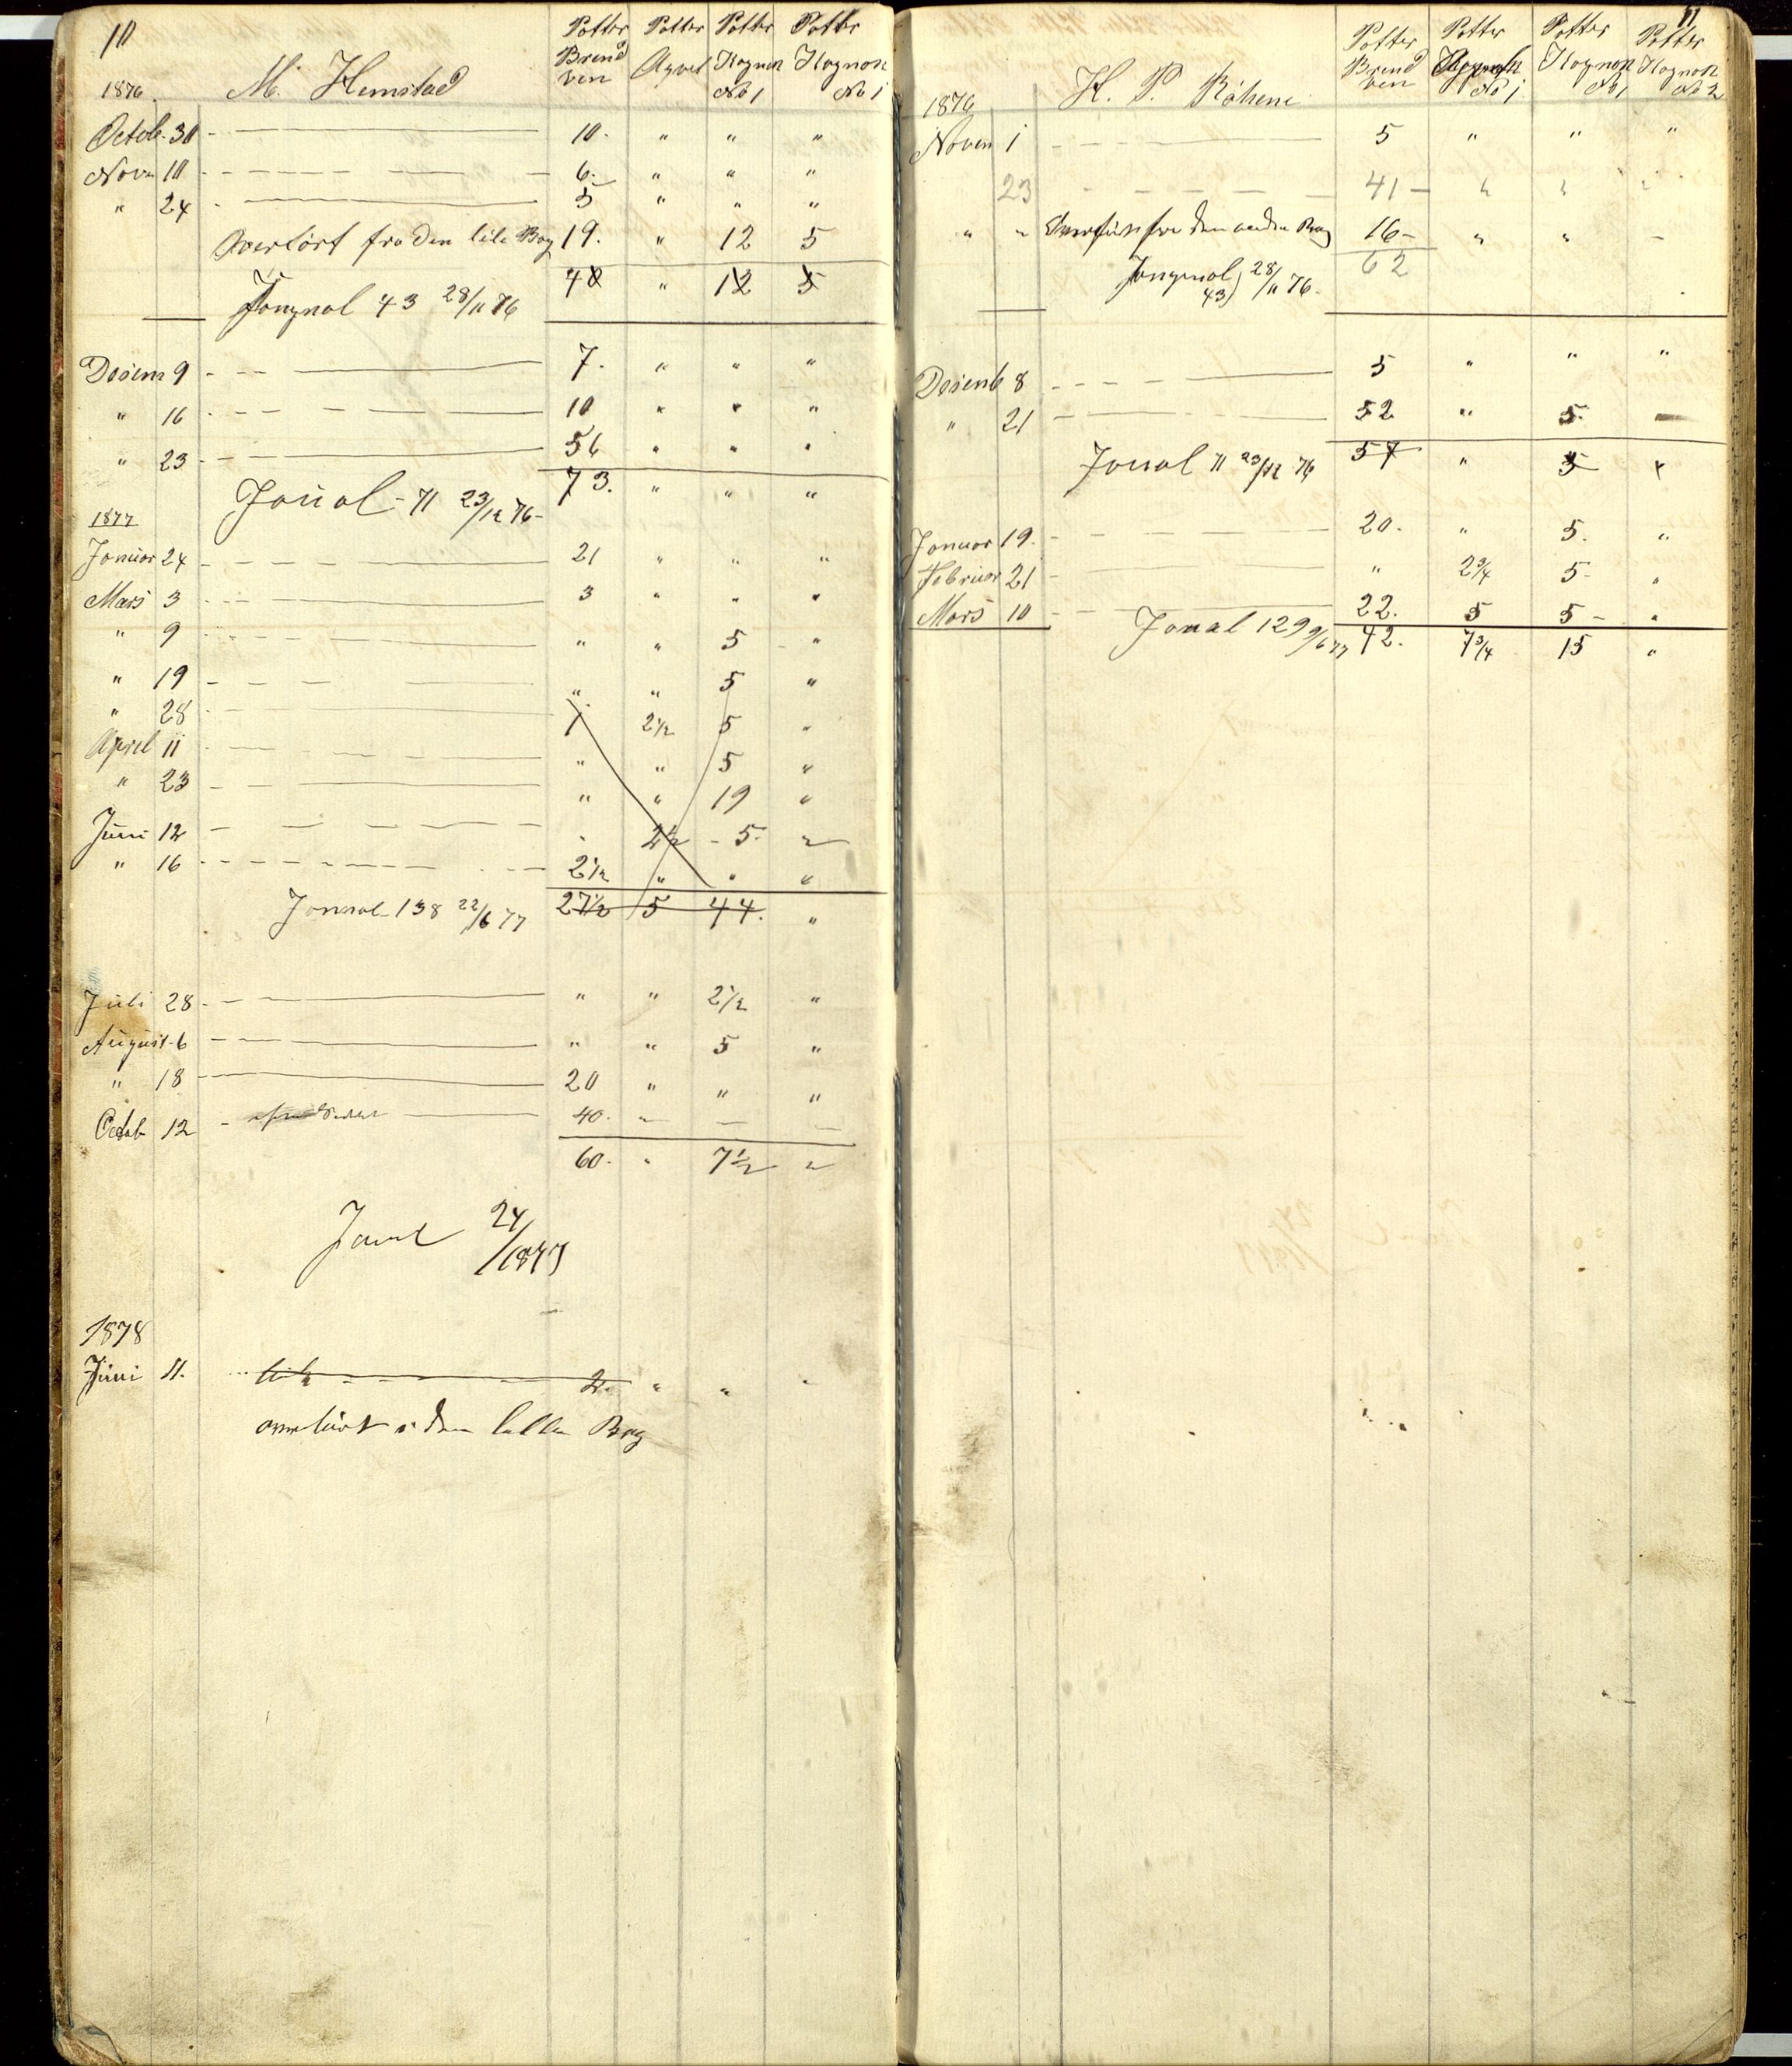 10
Potter Potter Potter Potter
Brend Aqvet Kognon Kognon
ven No 1 No 1
1876. M. Hemstad
Octob. 30 - 10. " " "
Nov. 10 - 6. " " "
" 24 - 5 " " "
Overført fra den lile Bog 19. " 12 5
Jongnal 43 28/11 76 40 " 12 5
Desem 9 - 7. " " "
" 16 - 10 " " "
" 23 - 56 " " "
Joual - 71 23/12 76 - 73. " " "
1877
Januar 24 - 21 " " "
Mars 3 - 3 " " "
" 9 - " " 5 "
" 19 - " " 5 "
" 28 - 1 2½ 5 "
April 11 - " " 5 "
" 23 - " " 19 "
Juni 12 - " 2½ - 5. "
" 16 - 2½ " " "
Jonnal 138 22/6 77 27½ 5 44. "
Juli 28 - " " 2½ "
August 6 - " " 5 "
" 18 - 20 " " "
Octob 12 - 40. " — —
60. " 7½ "
24/1877
1878
Juni 11. 2. " " "
overført i den lille Bog
11
Potter Potter Potter Potter
Brend Kognon Kognon
ven No 1 No 1 No 2
1876 H. P. Röhene
Novem 1 - 5 " " "
23 - 41 - " " "
" " Overført fra den anden Bog 16 - " " -
62
Jongnal 28/11 76.
43)
Desemb 8 - 5 " " "
" 21 - 52 " 5. —
Joual 71 23/12 76 57 " 5 "
Januar 19. - 20. " 5. "
Februar 21 - " 2¾ 5 - "
Mars 10 - 22. 5 5 - "
Jonal 129 9/6 77 42. 7¾ 15 "